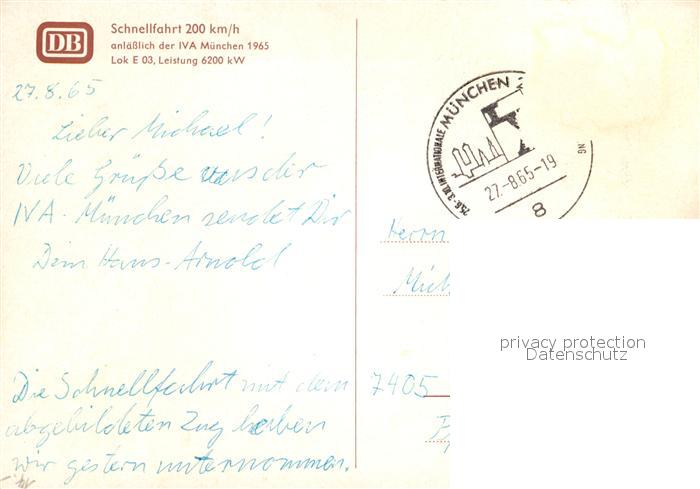 DB
Schnellfahrt 200 km/h
anläßlich der IVA München 1965
Lok E 03, Leistung 6200 kW
27.8.65
Lieber Michael!
Viele Grüße von der
IVA-München sendet Dir
Dein Hans-Arnold
Die Schnellfahrt mit dem
abgebildeten Zug haben
wir gestern unternommen.
MÜNCHEN
INTERNATIONALE
NG
27.-8.65-19
8
Herrn
Mich
7405
privacy protection
Datenschutz